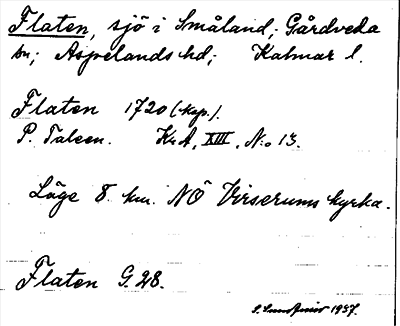 Flaten, sjö i Småland; Gårdveda
sn; Aspelands hd; Kalmar l.
Flaten 1720 (kop.).
P. Talcen. KrA, XIII, N:o 13.
Läge 8 km. NÖ Virserums kyrka.
Flaten G. 28.
1937.